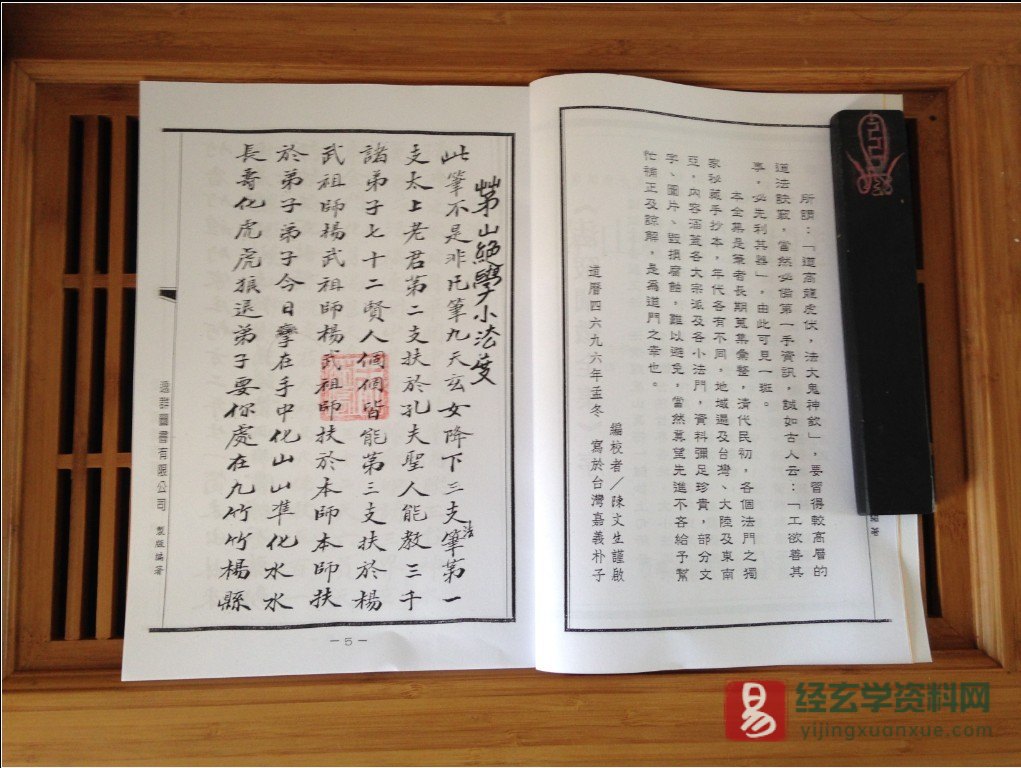 所謂：「道高龍虎伏，法大鬼神欽」，要習得較高層的
道法訣竅，當然必備第一手資訊，誠如古人云：「工欲善其
事，必先利其器」，由此可見一班。
本全集是筆者長期蒐集彙整，清代民初，各個法門之獨
家秘藏手抄本，年代各有不同，地域遍及台灣、大陸及東南
亞，內容涵蓋各大宗派及各小法門，資料彌足珍貴，部分文
字、圖片、毀損磨蝕，難以避免，當然冀望先進不吝給予幫
忙補正及諒解，是為道門之幸也。
編校者／陳文生謹啟
道曆四六九六年孟冬　寫於台灣嘉義朴子
編著
茅山絕學小法度
此筆不是非凡筆九天玄女降下三支筆第一
支太上老君第二支扶於孔夫聖人能教三千
諸弟子七十二賢人個個皆能第三支扶於楊
武祖師楊武祖師楊武祖師扶於本師本師扶
於弟子弟子今日在手中化山山準化水水
長壽化虎虎狼退弟子要你處在九竹竹楊縣
法
逸群圖書有限公司　製版編著
－5－
易
经玄学资料网
yijingxuanxue.com